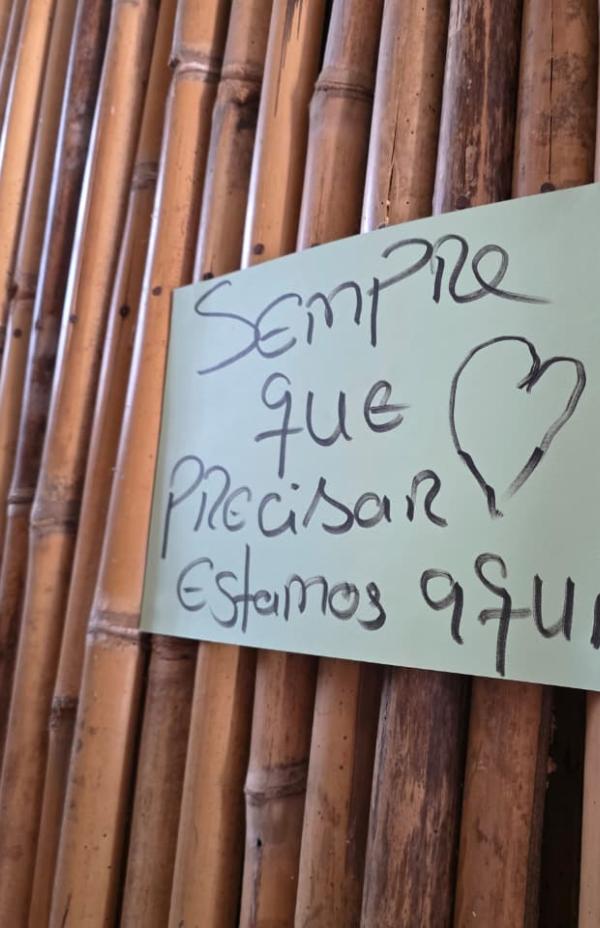 Sempre
que
Precisar
Estamos aqui